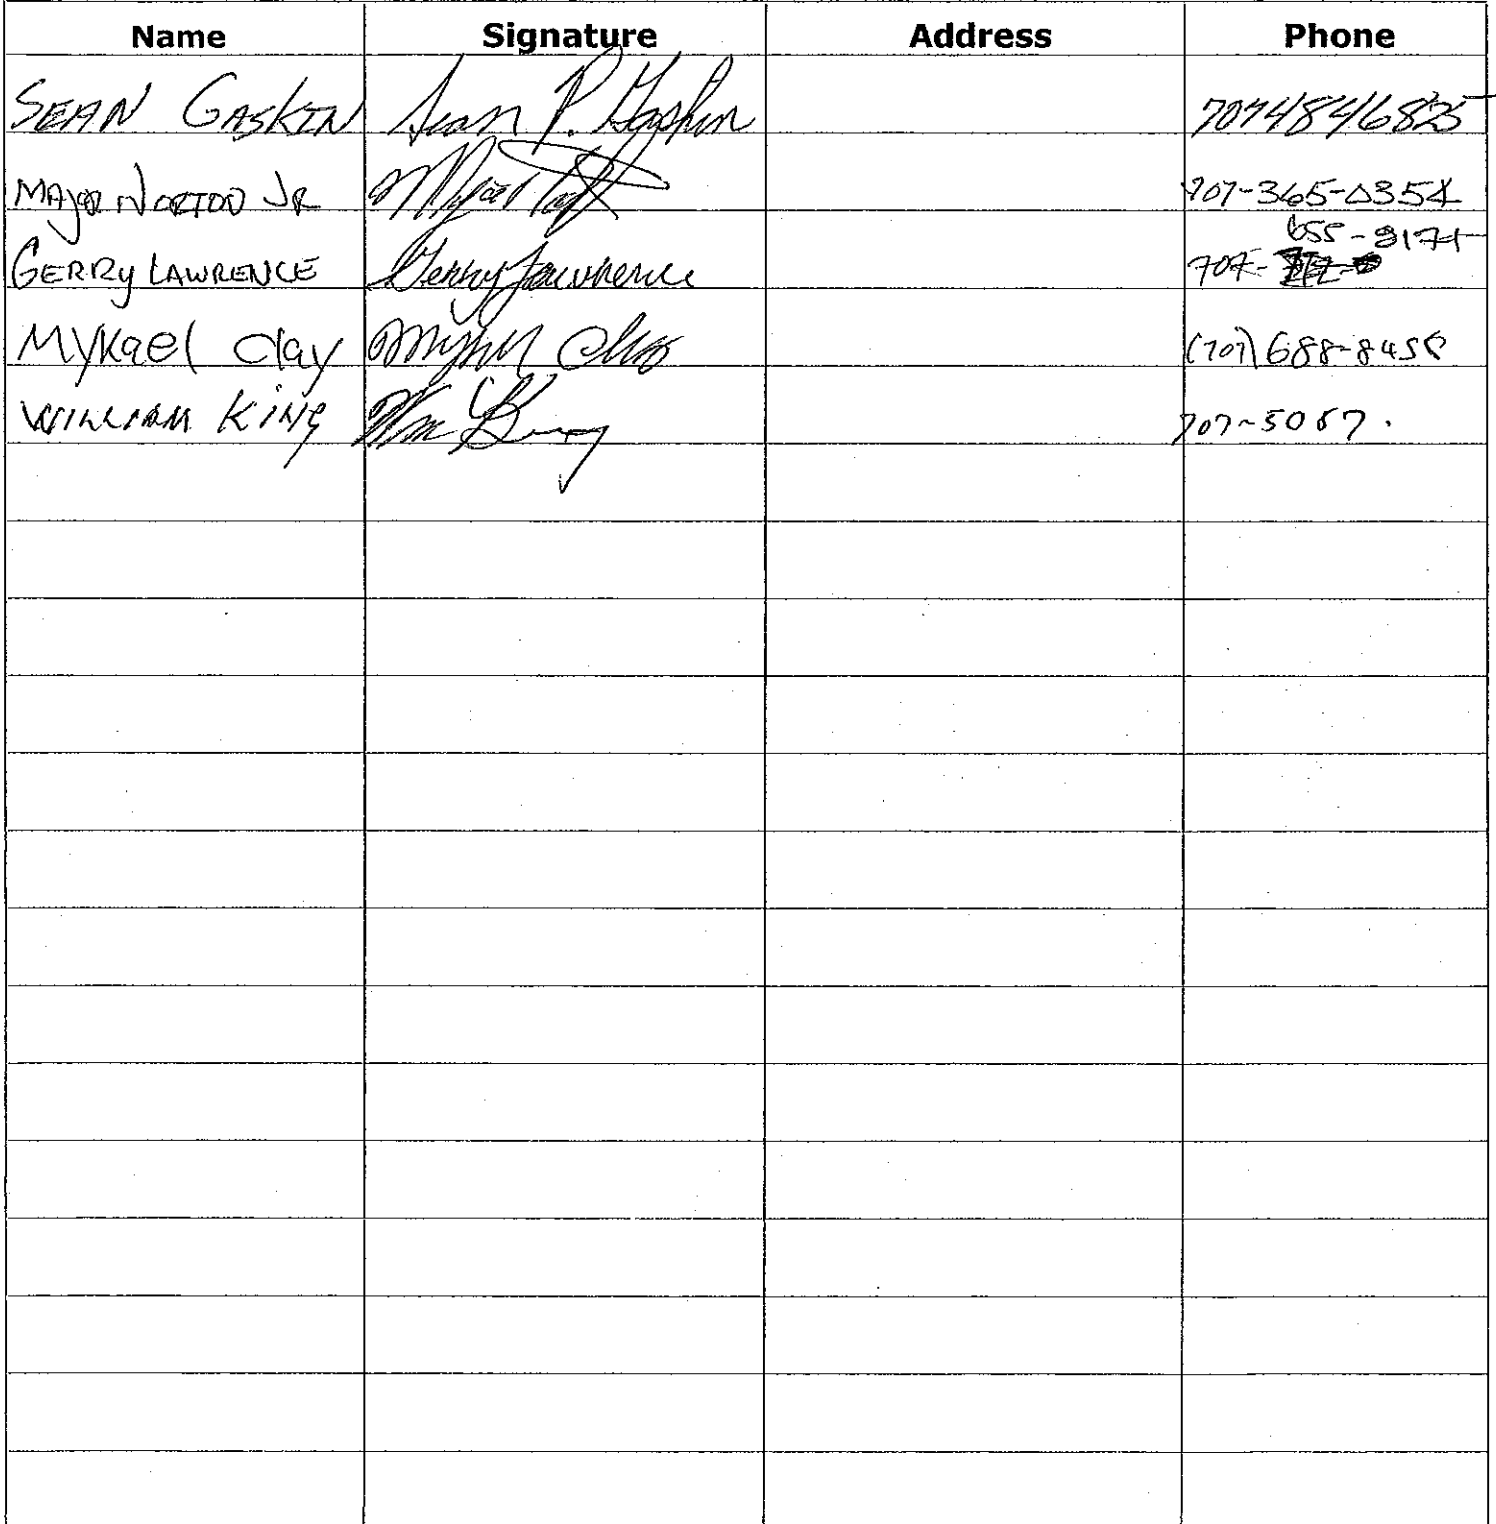 Name Signature Address Phone
SEAN GASKIN Sean P. Gaskin 7074846825
MAJOR NORTON JR 707-365-0354
655-8171
GERRY LAWRENCE Gerry Lawrence 707-
Mykael Clay (707) 688-8458
WILLIAM KING Wm King 707-5067.